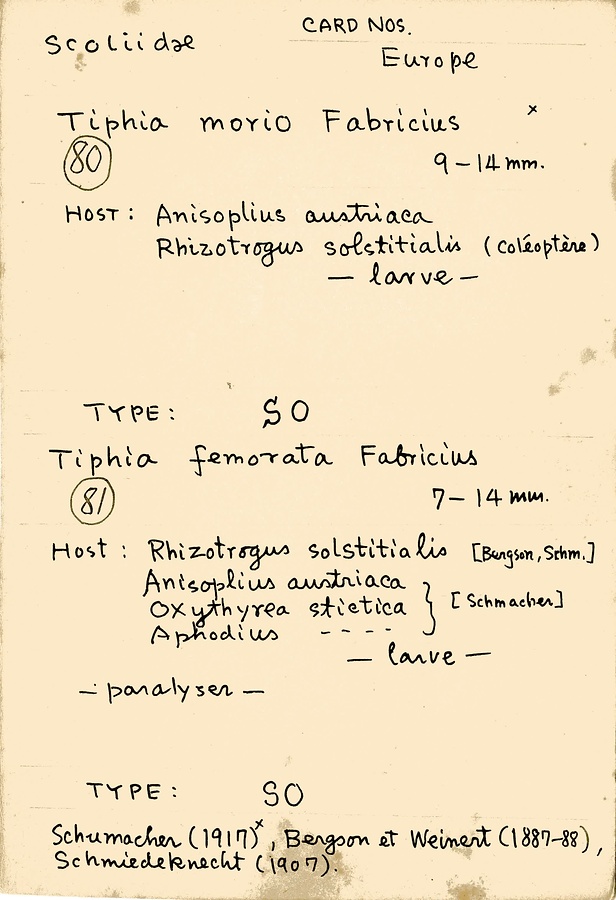 CARD NOS.
Scoliidae
Europe
Tiphia morio Fabricius x
80
9-14 mm.
HOST: Anisoplius austriaca
Rhizotrogus solstitialis (Coléoptère)
— larve —
TYPE: SO
Tiphia femorata Fabricius
81
7-14 mm.
Host: Rhizotrogus solstitialis [Bergson, Schm.]
Anisoplius austriaca
Oxythyrea stictica } [Schmacher]
Aphodius - - - -
— larve —
— paralyser —
TYPE: SO
Schumacher (1917)x, Bergson et Weinert (1887-88),
Schmiedeknecht (1907).